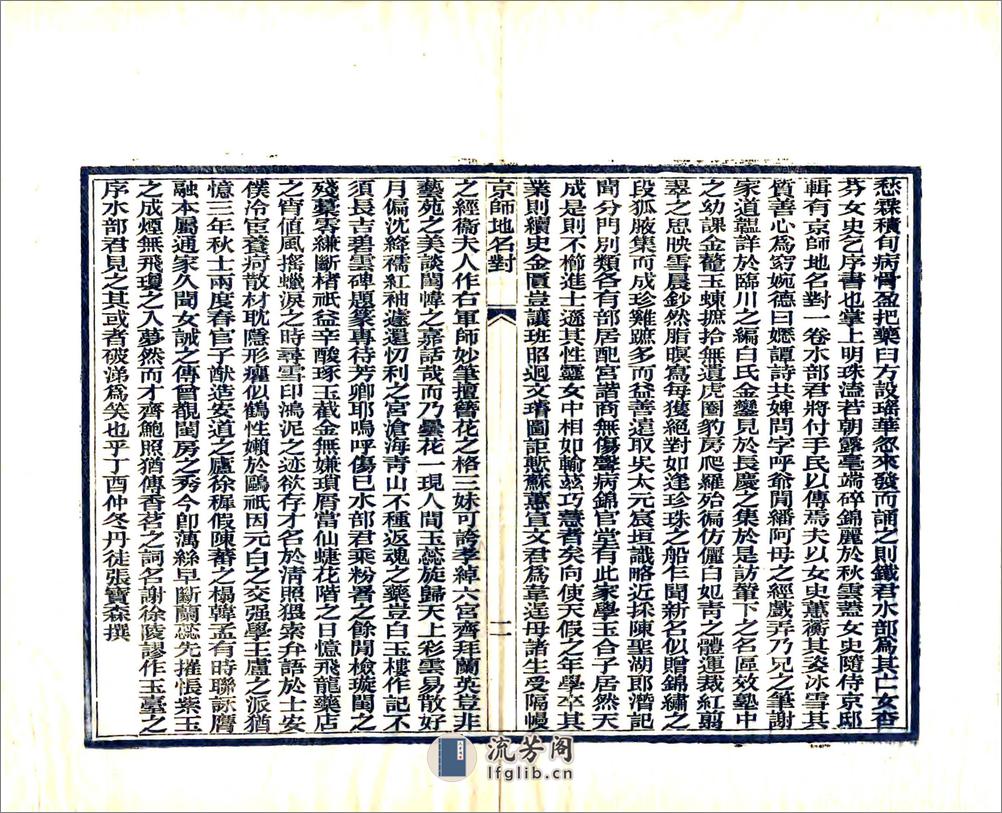 愁霖積旬病骨盈把藥臼方設瑤華忽來發而誦之則鐵君水部爲其亡女杏
芬女史乞序書也掌上明珠溘若朝露毫端碎錦麗於秋雲蓋女史隨侍京邸
輯有京師地名對一卷水部君將付手民以傳焉夫以女史蕙蘅其姿冰雪其
質善心爲窈婉德曰嫕譚詩共婢問字呼爺聞繙阿母之經戲弄乃兄之筆謝
家道韞詳於臨川之編白氏金鑾見於長慶之集於是訪輦下之名區效塾中
之幼課金鼇玉蝀摭拾無遺虎圈豹房爬羅殆徧仿儷白妃青之體運裁紅翦
翠之思映雪晨鈔然脂暝寫每獲絕對如逢珍珠之船乍聞新名似贈錦繡之
段狐腋集而成珍雞蹠多而益善遠取吳太元宸垣識略近採陳聖湖郎潛記
聞分門別類各有部居配宮諧商無傷聲病錦官堂有此家學玉合子居然天
成是則不櫛進士遜其性靈女中相如輸茲巧慧者矣向使天假之年學卒其
業則續史金匱豈讓班昭迴文璿圖詎慙蘇蕙宣文君爲韋逞母諸生受隔幔
京師地名對 二
之經衞夫人作右軍師妙筆擅簪花之格三妹可誇孝綽六宮齊拜蘭英豈非
藝苑之美談閨幃之嘉話哉而乃曇花一現人間玉蕊旋歸天上彩雲易散好
月偏沈絳襦紅袖遽還忉利之宮滄海青山不種返魂之藥豈白玉樓作記不
須長吉碧雲碑題篆專待芳卿耶嗚呼傷已水部君乘粉署之餘閒檢璇閨之
殘藁零縑斷楮祇益辛酸琢玉截金無嫌瑣屑當仙蜨花階之日憶飛龍藥店
之宵値風搖蠟淚之時尋雪印鴻泥之迹欲存才名於淸照猥索弁語於士安
僕冷宦養疴散材耽隱形癯似鶴性嬾於鷗祇因元白之交强學王盧之派猶
憶三年秋士兩度春官子猷造安道之廬徐穉假陳蕃之榻韓孟有時聯詠膺
融本屬通家久聞女誡之傳曾觀閨房之秀今卽萬絲早斷蘭蕊先摧悵紫玉
之成煙無飛瓊之入夢然而才齊鮑照猶傳香茗之詞名謝徐陵謬作玉臺之
序水部君見之其或者破涕爲笑也乎丁酉仲冬丹徒張寶森撰
流芳阁
lfglib.cn